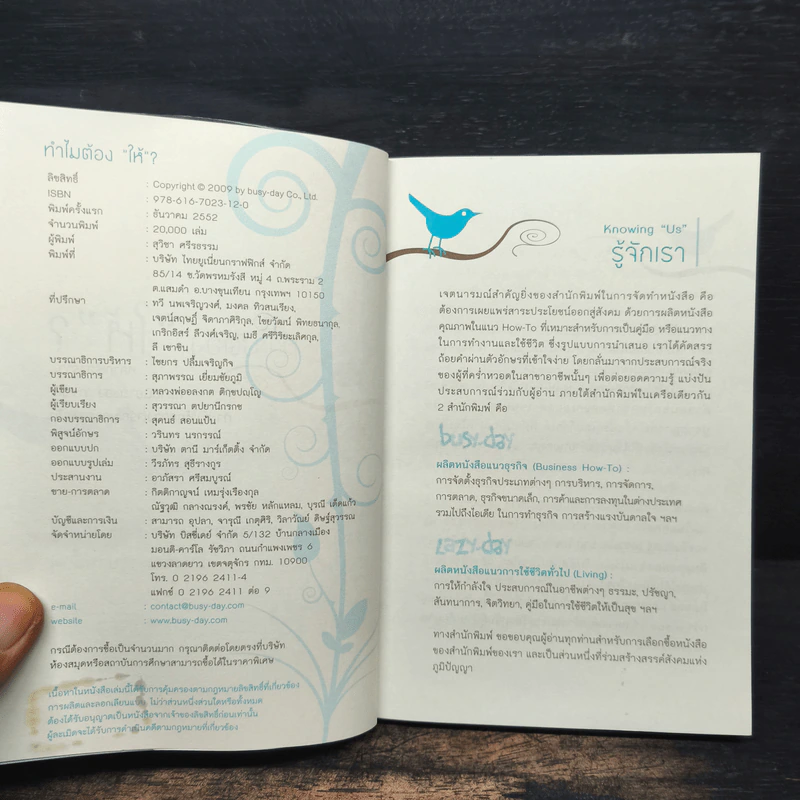 ทำไมต้อง "ให้"?
ลิขสิทธิ์ : Copyright © 2009 by busy-day Co., Ltd.
ISBN : 978-616-7023-12-0
พิมพ์ครั้งแรก : ธันวาคม 2552
จำนวนพิมพ์ : 20,000 เล่ม
ผู้พิมพ์ : สุวิชา ศรีรธรรม
พิมพ์ที่ : บริษัท ไทยยูเนี่ยนกราฟฟิกส์ จำกัด
85/14 ซ.วัดพรหมรังสี หมู่ 4 ถ.พระราม 2
ต.แสมดำ อ.บางขุนเทียน กรุงเทพฯ 10150
ที่ปรึกษา : ทวี นพเจริญวงศ์, มงคล ทิวสนเรียง,
เจตน์สฤษฎิ์ จิดาภาศิริกุล, ไชยวัฒน์ พิทยธนากุล,
เกริกอิสร์ ลีวงศ์เจริญ, เมธี ศรีวิริยะเลิศกุล,
ลี เชาชิน
บรรณาธิการบริหาร : ไชยกร ปลื้มเจริญกิจ
บรรณาธิการ : สุภาพรรณ เยี่ยมชัยภูมิ
ผู้เขียน : หลวงพ่ออลงกต ติกฺขปญฺโญ
ผู้เรียบเรียง : สุวรรณา ตปยานีกรกช
กองบรรณาธิการ : สุคนธ์ สอนแป้น
พิสูจน์อักษร : วรินทร นรกรรณ์
ออกแบบปก : บริษัท ดานี มาร์เก็ตติ้ง จำกัด
ออกแบบรูปเล่ม : วีรภัทร สุธีรางกูร
ประสานงาน : อาภัสรา ศรีสมบูรณ์
ขาย-การตลาด : กิตติกาญจน์ เหมรุ่งเรืองกุล
ณัฐวุฒิ กลางณรงค์, พรชัย หลักแหลม, บูรณี เด็ดแก้ว
บัญชีและการเงิน : สามารถ อุปลา, จารุณี เกตุศิริ, วิลาวัณย์ ดิษฐ์สุวรรณ
จัดจำหน่ายโดย : บริษัท บิสซี่เดย์ จำกัด 5/132 บ้านกลางเมือง
มอนติ-คาร์โล รัชวิภา ถนนกำแพงเพชร 6
แขวงลาดยาว เขตจตุจักร กทม. 10900
โทร. 0 2196 2411-4
แฟกซ์ 0 2196 2411 ต่อ 9
e-mail : contact@busy-day.com
website : www.busy-day.com
กรณีต้องการซื้อเป็นจำนวนมาก กรุณาติดต่อโดยตรงที่บริษัท
ห้องสมุดหรือสถาบันการศึกษาสามารถซื้อได้ในราคาพิเศษ
เนื้อหาในหนังสือเล่มนี้ได้รับการคุ้มครองตามกฎหมายลิขสิทธิ์ที่เกี่ยวข้อง
การผลิตและลอกเลียนแบบ ไม่ว่าส่วนหนึ่งส่วนใดหรือทั้งหมด
ต้องได้รับอนุญาตเป็นหนังสือจากเจ้าของลิขสิทธิ์ก่อนเท่านั้น
ผู้ละเมิดจะได้รับการดำเนินคดีตามกฎหมายที่เกี่ยวข้อง
Knowing "Us"
รู้จักเรา
เจตนารมณ์สำคัญยิ่งของสำนักพิมพ์ในการจัดทำหนังสือ คือ
ต้องการเผยแพร่สาระประโยชน์ออกสู่สังคม ด้วยการผลิตหนังสือ
คุณภาพในแนว How-To ที่เหมาะสำหรับการเป็นคู่มือ หรือแนวทาง
ในการทำงานและใช้ชีวิต ซึ่งรูปแบบการนำเสนอ เราได้คัดสรร
ถ้อยคำผ่านตัวอักษรที่เข้าใจง่าย โดยกลั่นมาจากประสบการณ์จริง
ของผู้ที่คร่ำหวอดในสาขาอาชีพนั้นๆ เพื่อต่อยอดความรู้ แบ่งปัน
ประสบการณ์ร่วมกับผู้อ่าน ภายใต้สำนักพิมพ์ในเครือเดียวกัน
2 สำนักพิมพ์ คือ
busy-day
ผลิตหนังสือแนวธุรกิจ (Business How-To) :
การจัดตั้งธุรกิจประเภทต่างๆ การบริหาร, การจัดการ,
การตลาด, ธุรกิจขนาดเล็ก, การค้าและการลงทุนในต่างประเทศ
รวมไปถึงไอเดีย ในการทำธุรกิจ การสร้างแรงบันดาลใจ ฯลฯ
Lazy-day
ผลิตหนังสือแนวการใช้ชีวิตทั่วไป (Living) :
การให้กำลังใจ ประสบการณ์ในอาชีพต่างๆ ธรรมะ, ปรัชญา,
สันทนาการ, จิตวิทยา, คู่มือในการใช้ชีวิตให้เป็นสุข ฯลฯ
ทางสำนักพิมพ์ ขอขอบคุณผู้อ่านทุกท่านสำหรับการเลือกซื้อหนังสือ
ของสำนักพิมพ์ของเรา และเป็นส่วนหนึ่งที่ร่วมสร้างสรรค์สังคมแห่ง
ภูมิปัญญา